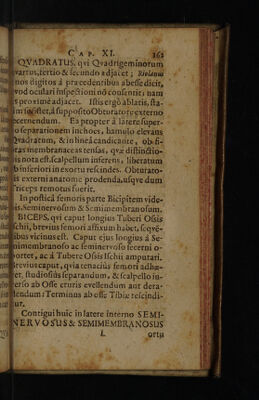 CAP. XI. 161
QVADRATUS, qui Quadrigeminorum
quartus, tertio & secundo adjacet; Riolanus
nos digitos à præcedentibus abesse dicit,
quod oculari inspectioni nō consentit; nam
proximè adjacet. Istis ergò ablatis, sta-
à supposito Obturatore externo
secernendum. Ea propter à latere super-
separationem inchoes, hamulo elevans
Quadratum, & in lineâ candicante, ob fi-
membranaceas tensas, quæ distinctio-
nis nota est, scalpellum inserens, liberatum
ab inferiori in exortu rescindes. Obturato-
externi anatome prodenda, usque dum
Triceps remotus fuerit.
In posticâ femoris parte Bicipitem vide-
bis, Seminervosum & Semimembranosum.
BICEPS, qui caput longius Tuberi Ossis
Ischii, brevius femori affixum habet, sequē-
tibus vicinus est. Caput ejus longius â Se-
mimembranoso ac seminervoso secerni o-
portet, ac â Tubere Ossis Ischii amputari.
Brevius caput, quia tenaciùs femori adhæ-
ret, studiosiùs separandum, & scalpello in-
verso ab Osse cruris evellendum aut dera-
dendum: Terminus ab osse Tibiæ rescindi-
tur.
Contigui huic in latere interno SEMI-
NERVOSUS & SEMIMEMBRANOSUS
L ortu